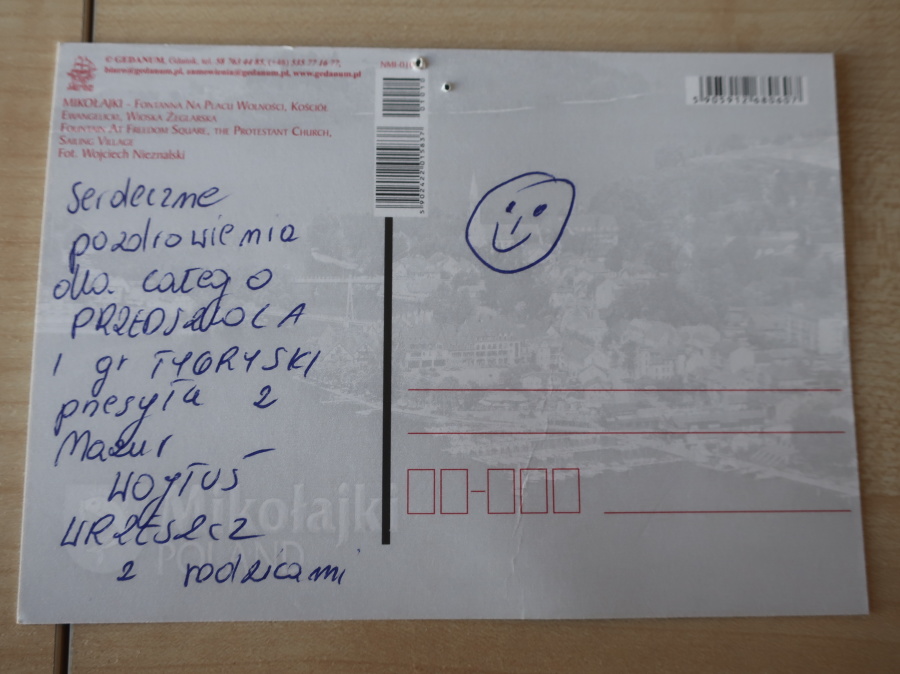 © GEDANUM, Gdańsk, tel. 58 763 44 85, (+48) 535 77 14 77,
biuro@gedanum.pl, zamowienia@gedanum.pl, www.gedanum.pl
MIKOŁAJKI - FONTANNA NA PLACU WOLNOŚCI, KOŚCIÓŁ
EWANGELICKI, WIOSKA ŻEGLARSKA
FOUNTAIN AT FREEDOM SQUARE, THE PROTESTANT CHURCH,
SAILING VILLAGE
Fot. Wojciech Nieznalski
5905912680607
Serdeczne
pozdrowienia
dla całego
PRZEDSZKOLA
I gr TYGRYSKI
przesyła z
Mazur
WOJTUŚ
WRZESZCZ
z rodzicami
Mikołajki
POLAND